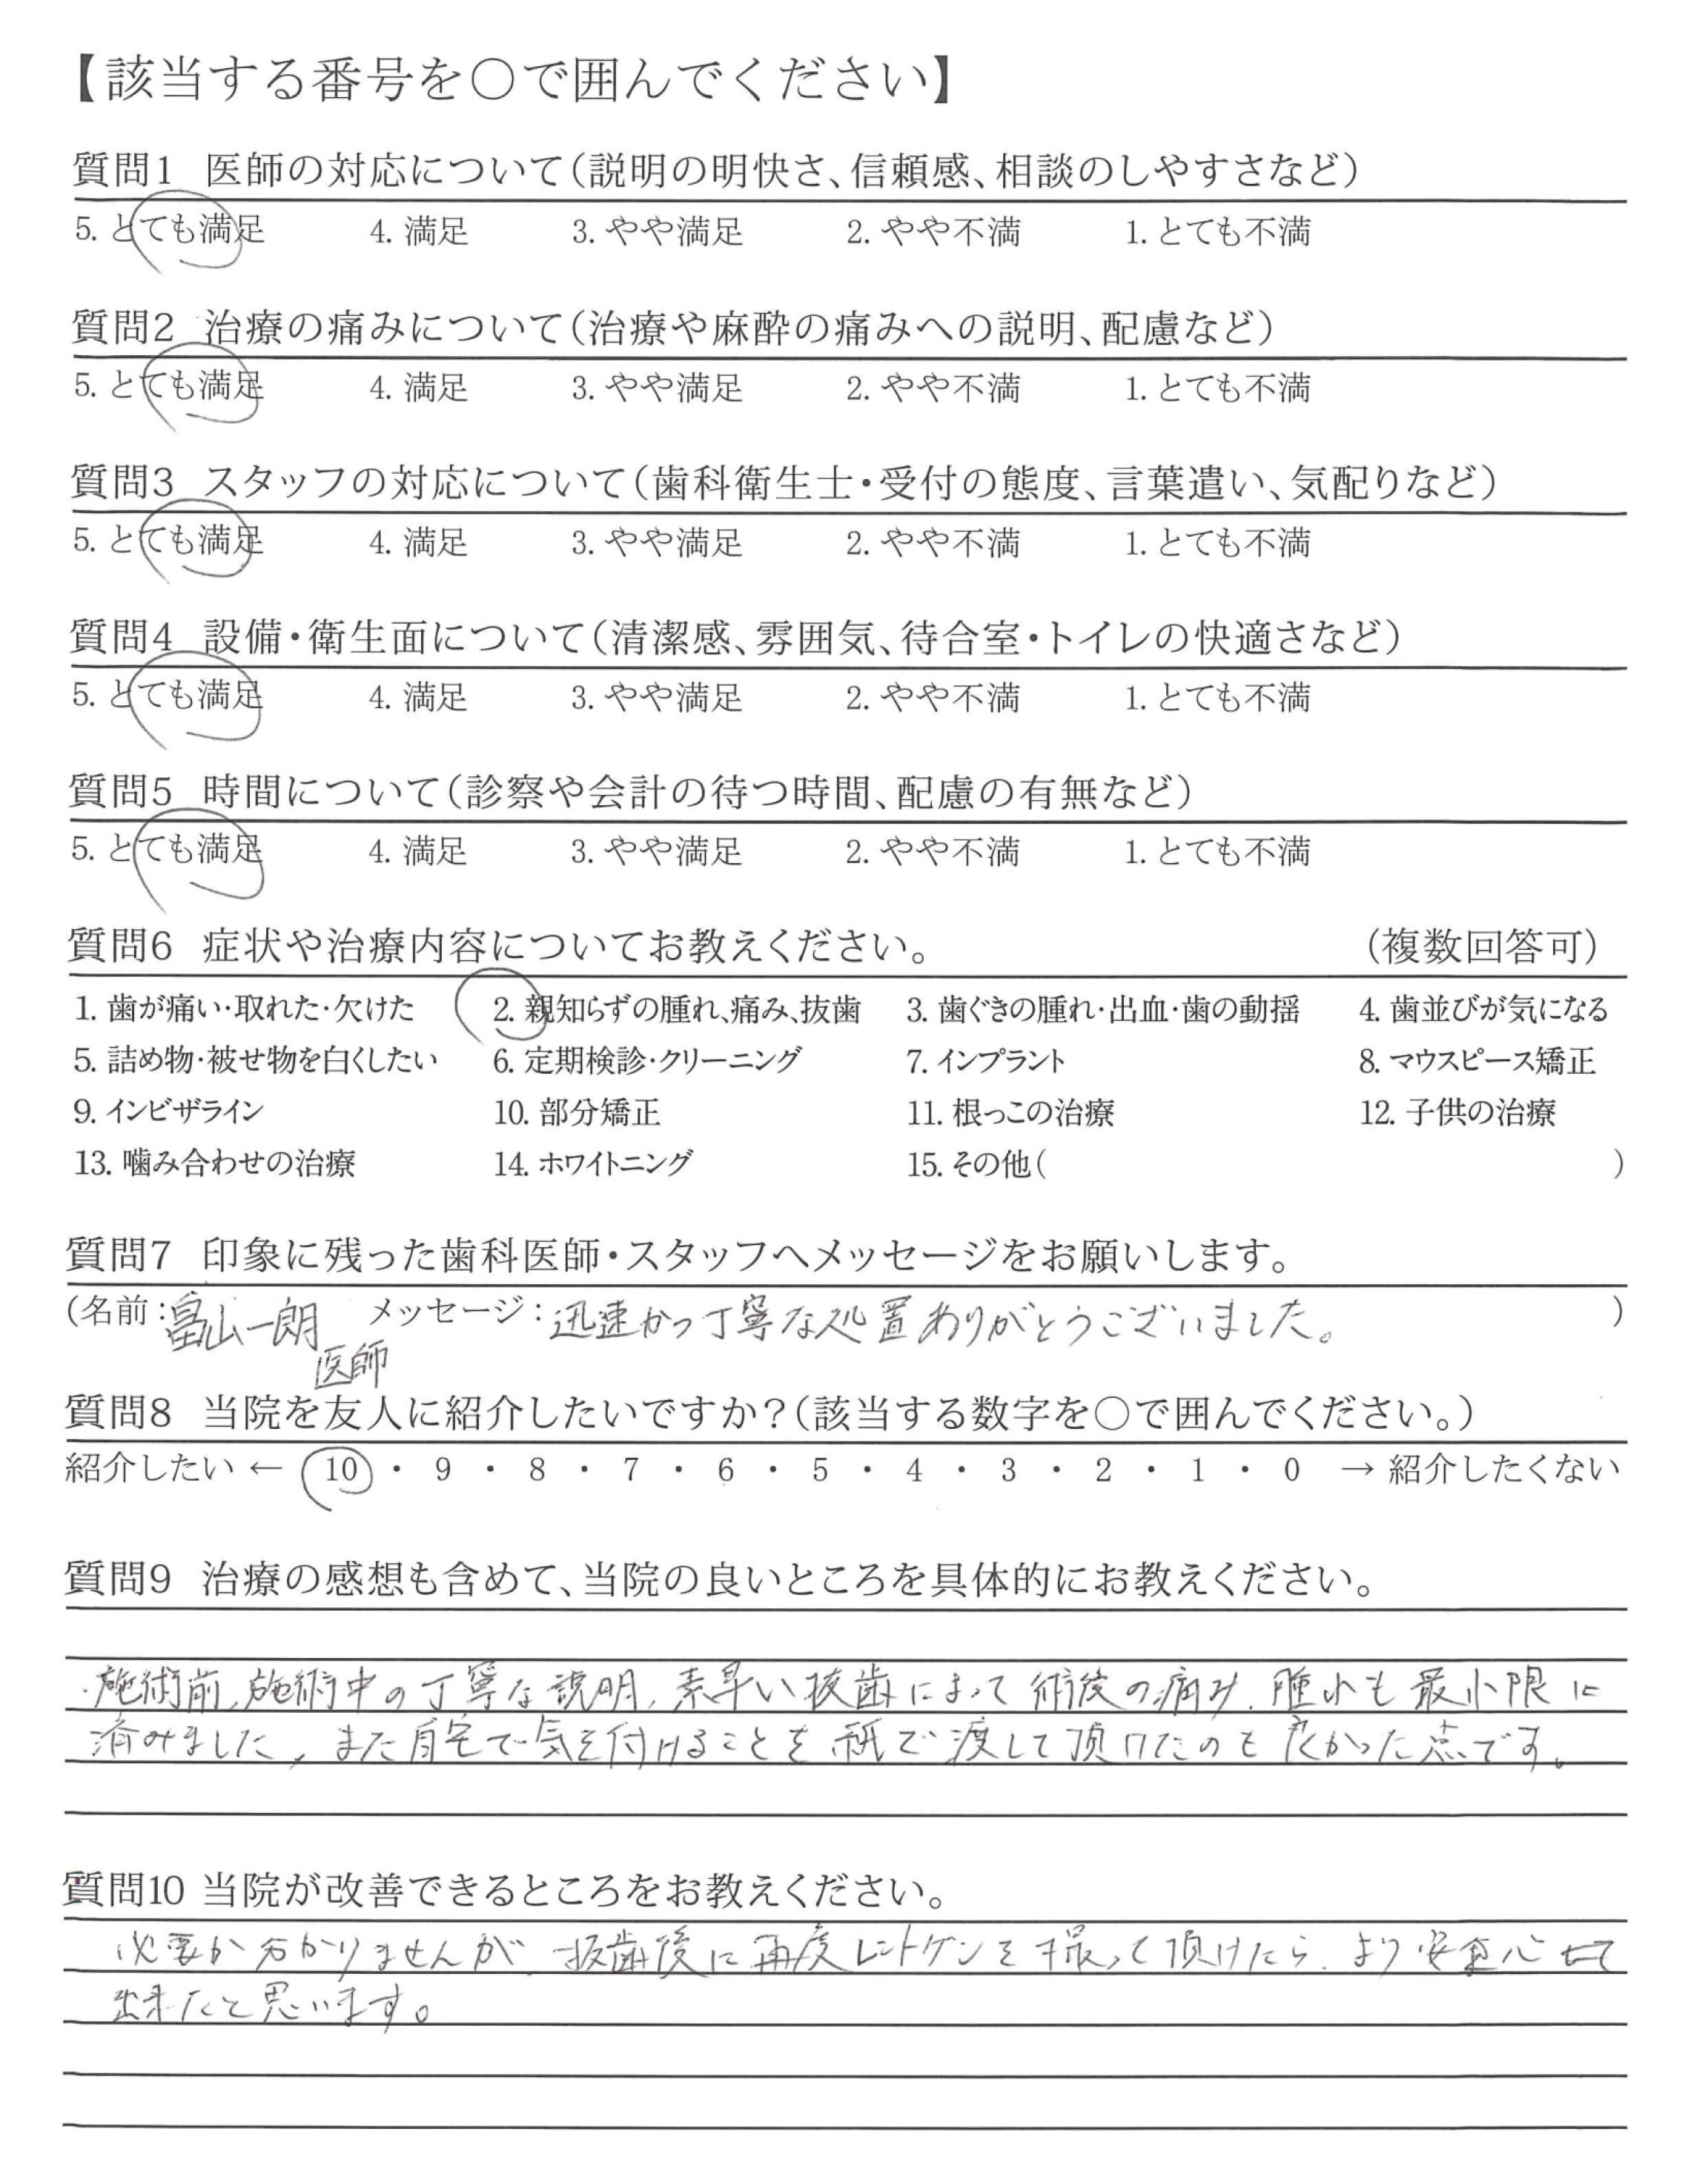 【該当する番号を○で囲んでください】
質問1 医師の対応について(説明の明快さ、信頼感、相談のしやすさなど)
5. とても満足 4. 満足 3. やや満足 2. やや不満 1. とても不満
質問2 治療の痛みについて(治療や麻酔の痛みへの説明、配慮など)
5. とても満足 4. 満足 3. やや満足 2. やや不満 1. とても不満
質問3 スタッフの対応について(歯科衛生士・受付の態度、言葉遣い、気配りなど)
5. とても満足 4. 満足 3. やや満足 2. やや不満 1. とても不満
質問4 設備・衛生面について(清潔感、雰囲気、待合室・トイレの快適さなど)
5. とても満足 4. 満足 3. やや満足 2. やや不満 1. とても不満
質問5 時間について(診察や会計の待つ時間、配慮の有無など)
5. とても満足 4. 満足 3. やや満足 2. やや不満 1. とても不満
質問6 症状や治療内容についてお教えください。 (複数回答可)
1. 歯が痛い・取れた・欠けた 2. 親知らずの腫れ、痛み、抜歯 3. 歯ぐきの腫れ・出血・歯の動揺 4. 歯並びが気になる
5. 詰め物・被せ物を白くしたい 6. 定期検診・クリーニング 7. インプラント 8. マウスピース矯正
9. インビザライン 10. 部分矯正 11. 根っこの治療 12. 子供の治療
13. 噛み合わせの治療 14. ホワイトニング 15. その他( )
質問7 印象に残った歯科医師・スタッフへメッセージをお願いします。
(名前:畠山一朗 メッセージ:迅速かつ丁寧な処置ありがとうございました。 )
医師
質問8 当院を友人に紹介したいですか?(該当する数字を○で囲んでください。)
紹介したい ← 10 ・ 9 ・ 8 ・ 7 ・ 6 ・ 5 ・ 4 ・ 3 ・ 2 ・ 1 ・ 0 → 紹介したくない
質問9 治療の感想も含めて、当院の良いところを具体的にお教えください。
・施術前、施術中の丁寧な説明、素早い抜歯によって術後の痛み、腫れも最小限に
済みました、また自宅で気を付けることを紙で渡して頂けたのも良かった点です。
質問10 当院が改善できるところをお教えください。
必要か分かりませんが、抜歯後に再度レントゲンを撮って頂けたら、より安心
出来たと思います。